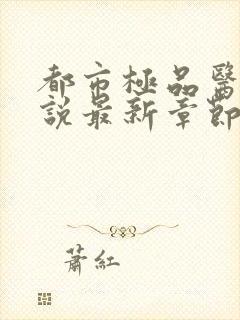 都市極品醫
說最新章節
蕭紅